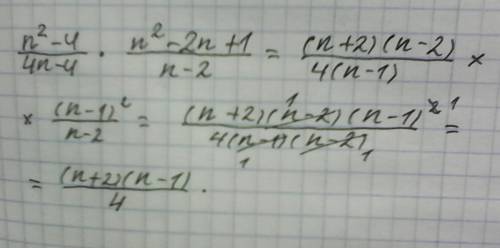 (n²-4)/(4n-4) · (n²-2n+1)/(n-2) = ((n+2)(n-2))/(4(n-1)) ×
× (n-1)²/(n-2) = ((n+2)(n-2)¹(n-1)²¹)/(4(n-1)₁(n-2)₁) =
= ((n+2)(n-1))/4 .